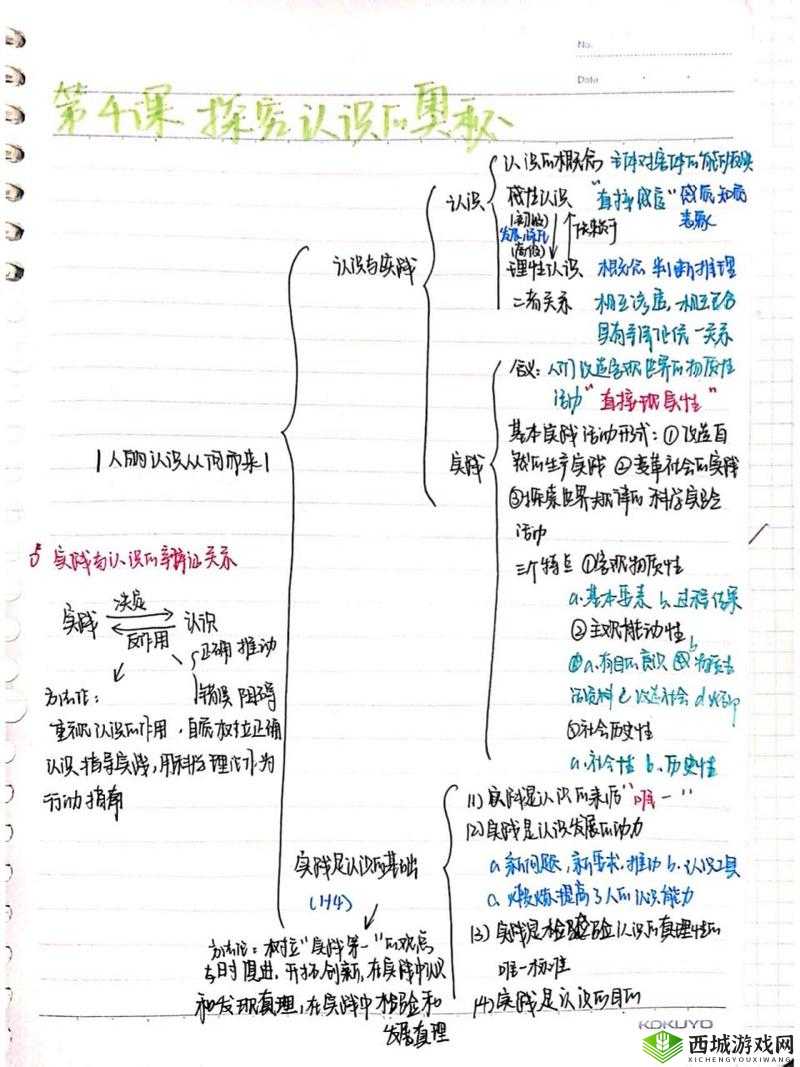 No.
Date
第4课 探究认识的奥秘
认识的概念 主体对客体的能动反映
认识
感性认识 "直接感官" 感觉 知觉
表象
(初级)
发展 深化
(高级)
理性认识 概念 判断 推理
二者关系 相互渗透,相互包含
具有辩证统一关系
认识与实践
含义:人们改造客观世界的物质性
活动"直接现实性"
实践
基本实践活动形式:①改造自
然的生产实践 ②变革社会的实践
③探索世界规律的科学实验
活动
三个特点 ①客观物质性
a.基本要素 b.过程 结果
②主观能动性
a.有目的 意识
c 改造社会 d
③社会历史性
a.社会性 b.历史性
1人的认识从何而来1
实践与认识的辩证关系
实践 决定 认识
反作用
正确 推动
错误 阻碍
方法论:
重视认识的作用,自觉树立正确
认识指导实践,用科学理论作为
行动指南
实践是认识的基础
(1+4)
(1)实践是认识的来源"唯一"
(2)实践是认识发展的动力
a.新问题,新要求,推动 b.认识工具
a.锻炼提高了人的认识能力
(3)实践是检验认识的真理性的
唯一标准
(4)实践是认识的目的
方法论:树立"实践第一"的观点
与时俱进,开拓创新,在实践中认识
和发现真理,在实践中检验和
发展真理
KOKUYO
西城游戏网
XICHENGYOUXIWANG